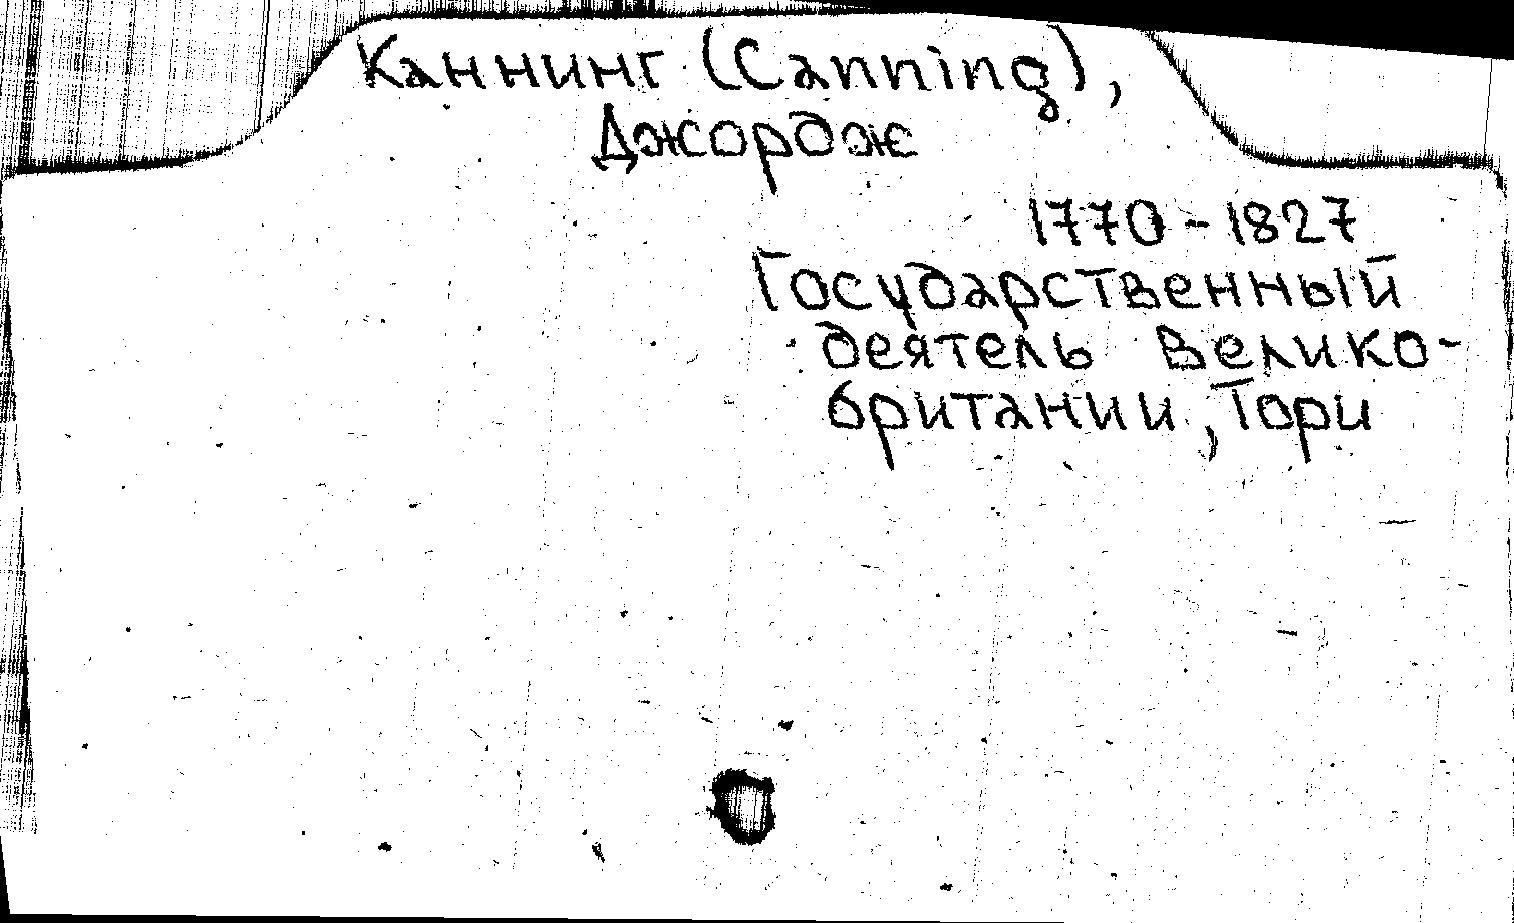 Каннинг (Canning),
Джордж
1770-1827
Государственный
деятель Велико-
британии, Тори